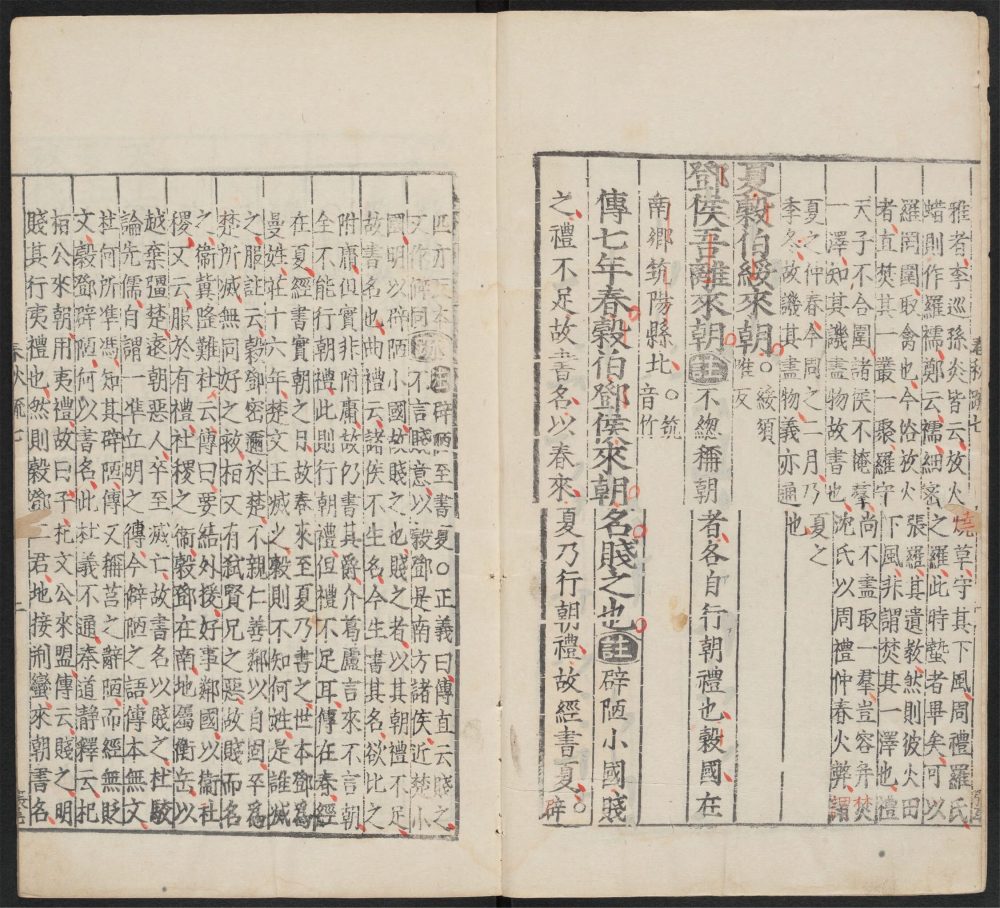 雅者李巡孫炎皆云放火燒草守其下風周禮羅氏
蜡則作羅襦鄭云襦細密之羅此時蟄者畢矣可以
羅罔圍取禽也今俗放火張羅其遺教然則彼火田
者直焚其一叢一聚羅守下風非謂焚其一澤也禮
天子不合圍諸侯不掩羣尚不盡取一羣豈容并焚
一澤知其譏盡物故書也沈氏以周禮仲春火弊謂
夏之仲春今周之二月乃夏之
季冬故譏其盡物義亦通也
夏穀伯綏來朝○綏須
唯反
鄧侯吾離來朝註不總稱朝者各自行朝禮也穀國在
南鄉筑陽縣北○筑
音竹
傳七年春穀伯鄧侯來朝名賤之也註辟陋小國賤
之禮不足故書名以春來夏乃行朝禮故經書夏○辟
匹亦反本
又作僻同疏註辟陋至書夏○正義曰傳直云賤之
不言賤意以穀鄧是南方諸侯近楚小
國明以辟陋小國故賤之也賤之者以其朝禮不足
故書名也曲禮云諸侯不生名今生書其名欲比之
附庸但實非附庸故仍書其爵介葛盧言來不言朝
全不能行朝禮此則行朝禮但禮不足耳傳在春經
在夏經書實朝之日故春來至夏乃書之世本鄧爲
曼姓莊十六年楚文王滅之穀則不知何姓是誰滅
之服註云穀鄧密邇於楚不親仁善鄰以自固卒爲
楚所滅無同好之救桓又有弑賢兄之惡故賤而名
之衛冀隆難杜云傳曰要結外援好事鄰國以衛社
稷又云服於有禮社稷之衛穀鄧在南地屬衡岳以
越棄彊楚遠朝惡人卒至滅亡故書名以賤之杜駮
論先儒自謂一準丘明之傳今辟陋之語傳本無文
杜何所準馮知其辟陋傳又稱莒之辟陋而經無貶
文穀鄧辟陋何以書名此杜義不通秦道静釋云杞
桓公來朝用夷禮故曰子杞文公來盟傳云賤之明
賤其行夷禮也然則穀鄧二君地接荊蠻來朝書名